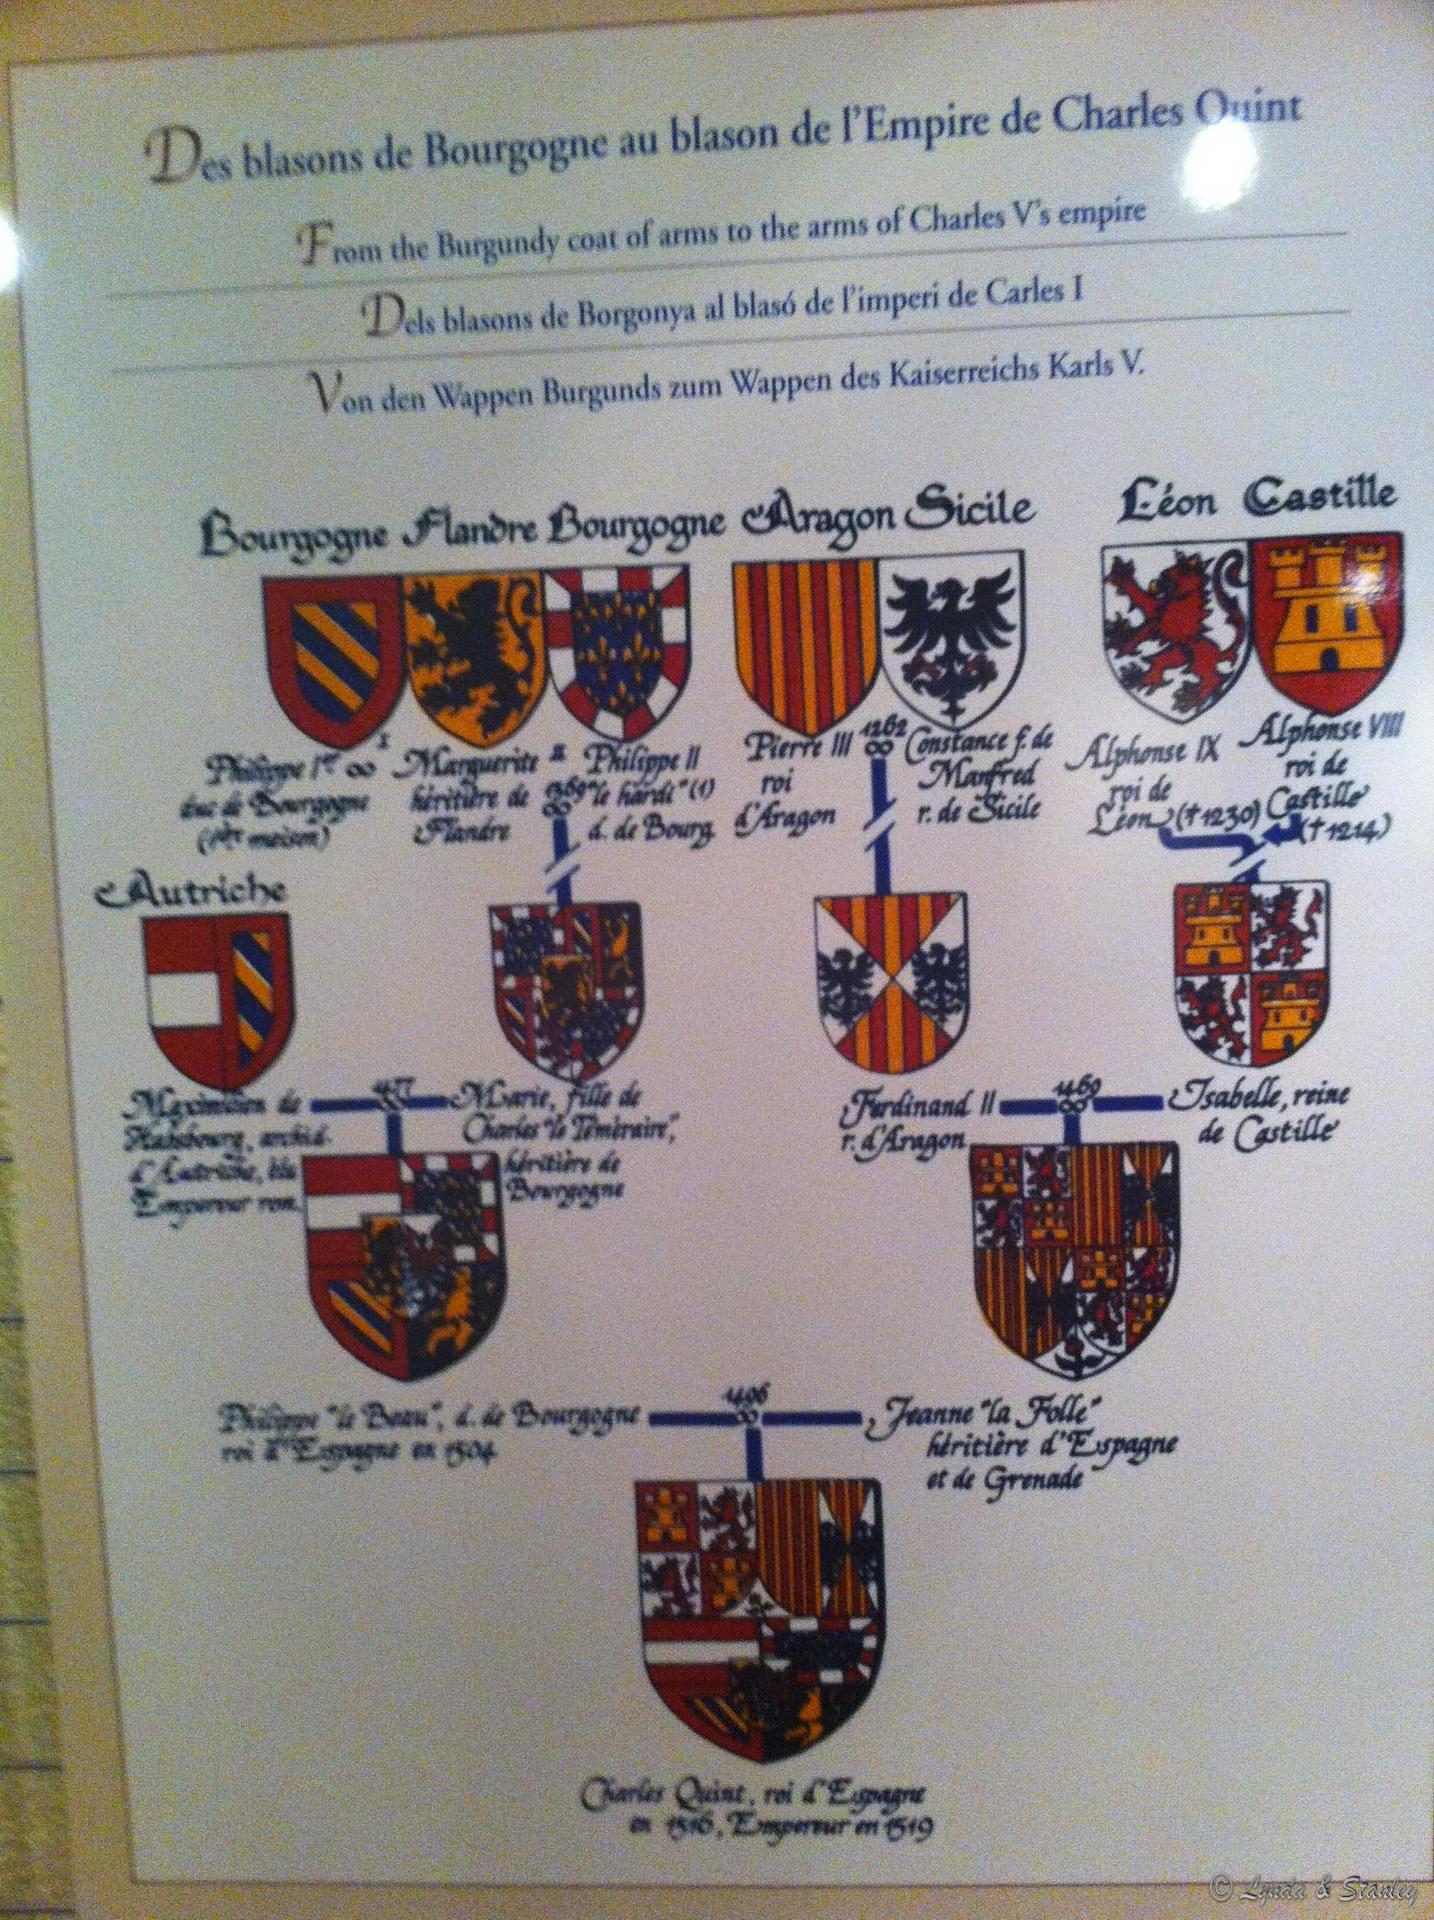 Des blasons de Bourgogne au blason de l'Empire de Charles Quint
From the Burgundy coat of arms to the arms of Charles V's empire
Dels blasons de Borgonya al blasó de l'imperi de Carles I
Von den Wappen Burgunds zum Wappen des Kaiserreichs Karls V.
Bourgogne Flandre Bourgogne Aragon Sicile Léon Castille
Philippe Ier ∞
duc de Bourgogne
(1ère maison)
I
Marguerite
héritière de
Flandre
II
1369
∞
Philippe II
"le hardi" (1)
d. de Bourg.
Pierre III
roi
d'Aragon
1262
∞
Constance f. de
Manfred
r. de Sicile
Alphonse IX
roi de
Léon († 1230)
Alphonse VIII
roi de
Castille
(† 1214)
Autriche
Maximilien de
Habsbourg, archid.
d'Autriche, élu
Empereur rom.
1477
∞
Marie, fille de
Charles "le Téméraire",
héritière de
Bourgogne
Ferdinand II
r. d'Aragon
1469
∞
Isabelle, reine
de Castille
Philippe "le Beau", d. de Bourgogne
roi d'Espagne en 1504
1496
∞
Jeanne "la Folle"
héritière d'Espagne
et de Grenade
Charles Quint, roi d'Espagne
en 1516, Empereur en 1519
© Lynda & Stanley